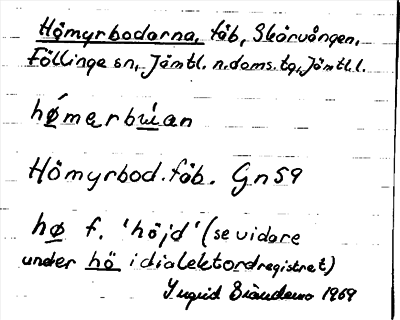 Hömyrbodarna, fäb, Skärvången,
Föllinge sn, Jämtl. n. doms. tg, Jämtl. l.
hǿmerbu̇an
Hömyrbod. fäb. Gn 59
hø f. 'höjd' (se vidare
under hö i dialektordregistret)
Ingrid 1969